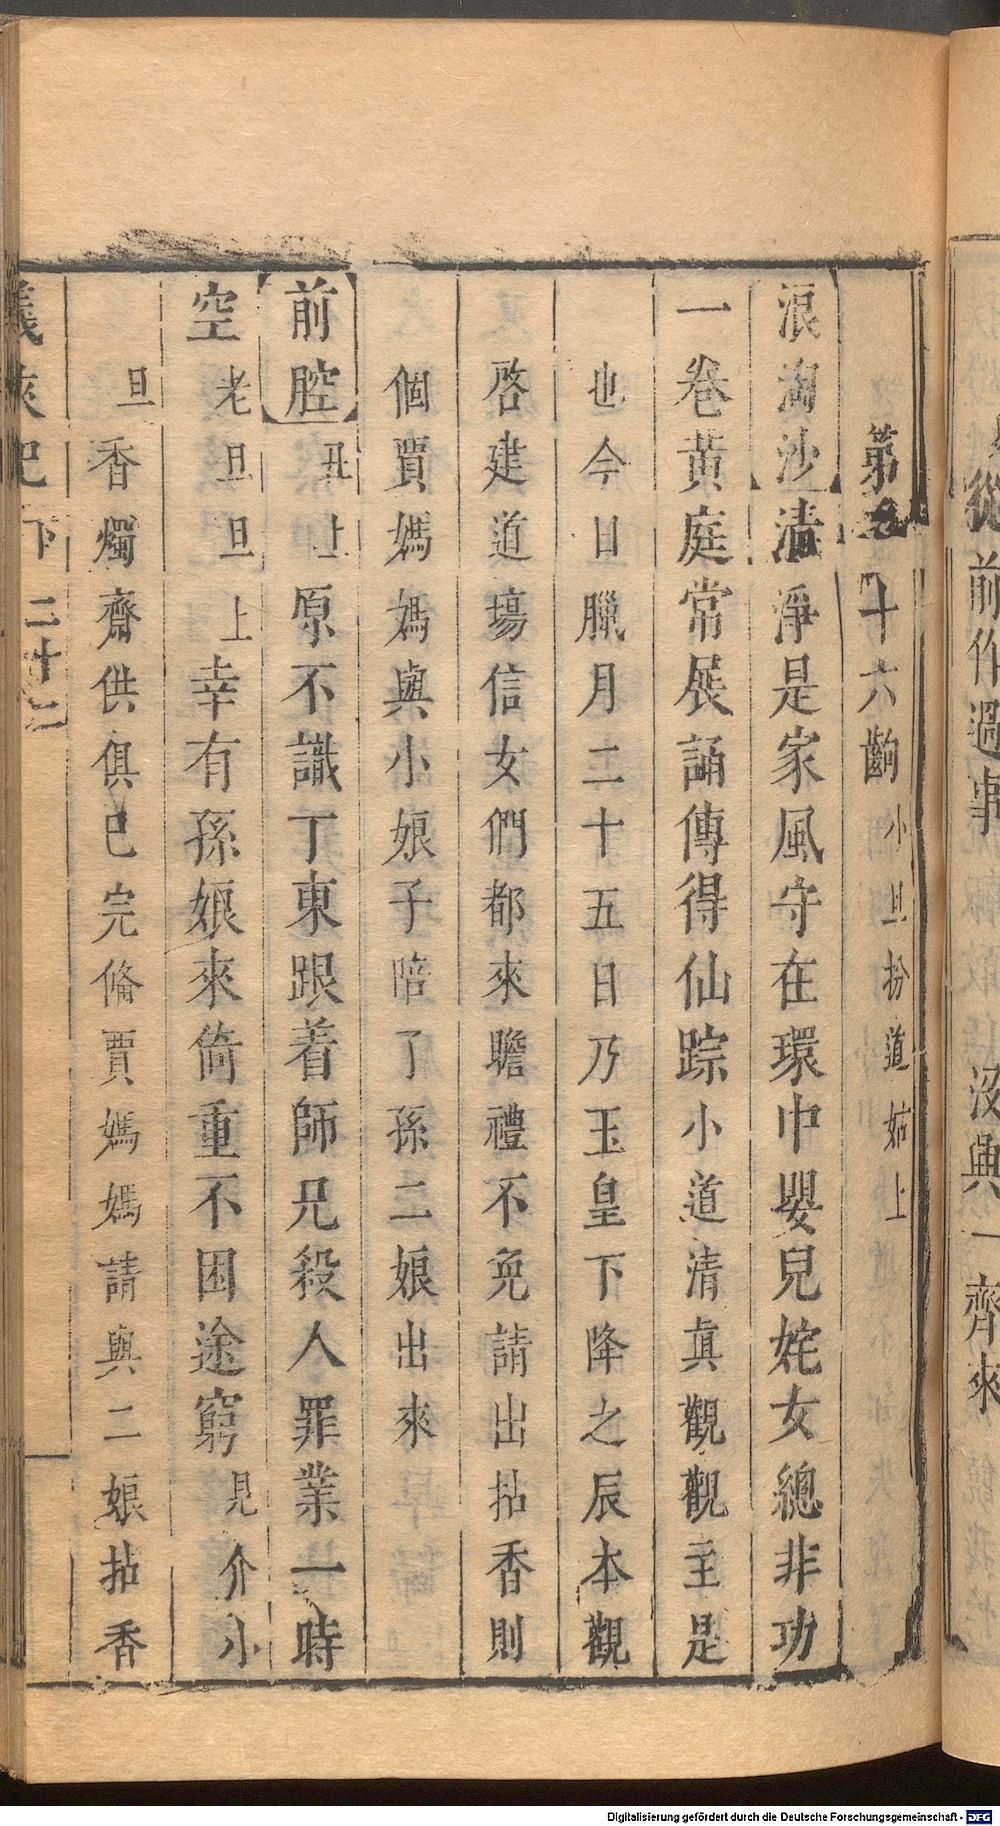 從前作過事沒興一齊來
第二十六齣小旦扮道姑上
浪淘沙清淨是家風守在環中嬰兒姹女總非功
一卷黃庭常展誦傳得仙踪小道清真觀觀主是
也今日臘月二十五日乃玉皇下降之辰本觀
啓建道場信女們都來瞻禮不免請出拈香則
個賈媽媽與小娘子陪了孫二娘出來
前腔丑上原不識丁東跟着師兄殺人罪業一時
空老旦旦上幸有孫娘來倚重不困途窮見介小
旦香燭齋供俱已完備賈媽媽請與二娘拈香
義俠記下二十二
Digitalisierung gefördert durch die Deutsche Forschungsgemeinschaft - DFG